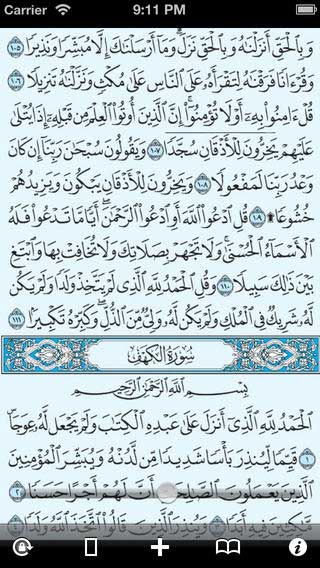 Carrier 9:11 PM
وَبِالْحَقِّ أَنزَلْنَٰهُ وَبِالْحَقِّ نَزَلَ ۗ وَمَآ أَرْسَلْنَٰكَ إِلَّا مُبَشِّرًا وَنَذِيرًا ١٠٥
وَقُرْءَانًا فَرَقْنَٰهُ لِتَقْرَأَهُۥ عَلَى النَّاسِ عَلَىٰ مُكْثٍ وَنَزَّلْنَٰهُ تَنزِيلًا ١٠٦
قُلْ ءَامِنُوا۟ بِهِۦٓ أَوْ لَا تُؤْمِنُوٓا۟ ۚ إِنَّ الَّذِينَ أُوتُوا۟ الْعِلْمَ مِن قَبْلِهِۦٓ إِذَا يُتْلَىٰ
عَلَيْهِمْ يَخِرُّونَ لِلْأَذْقَانِ سُجَّدًا ١٠٧ وَيَقُولُونَ سُبْحَٰنَ رَبِّنَآ إِن كَانَ
وَعْدُ رَبِّنَا لَمَفْعُولًا ١٠٨ وَيَخِرُّونَ لِلْأَذْقَانِ يَبْكُونَ وَيَزِيدُهُمْ
خُشُوعًا ۩ ١٠٩ قُلِ ادْعُوا۟ اللَّهَ أَوِ ادْعُوا۟ الرَّحْمَٰنَ ۖ أَيًّا مَّا تَدْعُوا۟ فَلَهُ
الْأَسْمَآءُ الْحُسْنَىٰ ۚ وَلَا تَجْهَرْ بِصَلَاتِكَ وَلَا تُخَافِتْ بِهَا وَابْتَغِ
بَيْنَ ذَٰلِكَ سَبِيلًا ١١٠ وَقُلِ الْحَمْدُ لِلَّهِ الَّذِى لَمْ يَتَّخِذْ وَلَدًا وَلَمْ يَكُن
لَّهُۥ شَرِيكٌ فِى الْمُلْكِ وَلَمْ يَكُن لَّهُۥ وَلِىٌّ مِّنَ الذُّلِّ ۖ وَكَبِّرْهُ تَكْبِيرًا ١١١
سُورَةُ الْكَهْفِ
بِسْمِ اللَّهِ الرَّحْمَٰنِ الرَّحِيمِ
الْحَمْدُ لِلَّهِ الَّذِىٓ أَنزَلَ عَلَىٰ عَبْدِهِ الْكِتَٰبَ وَلَمْ يَجْعَل لَّهُۥ عِوَجَا ١
قَيِّمًا لِّيُنذِرَ بَأْسًا شَدِيدًا مِّن لَّدُنْهُ وَيُبَشِّرَ الْمُؤْمِنِينَ
الَّذِينَ يَعْمَلُونَ الصَّٰلِحَٰتِ أَنَّ لَهُمْ أَجْرًا حَسَنًا ٢
مَّٰكِثِينَ فِيهِ أَبَدًا ٣ وَيُنذِرَ الَّذِينَ قَالُوا۟ اتَّخَذَ اللَّهُ وَلَدًا ٤